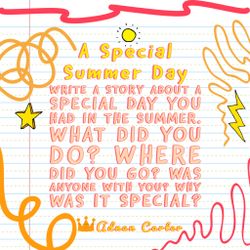 A Special
Summer Day
WRITE A STORY ABOUT A
SPECIAL DAY YOU
HAD IN THE SUMMER.
WHAT DID YOU
DO? WHERE
DID YOU GO? WAS
ANYONE WITH YOU? WHY
WAS IT SPECIAL?
Adaea Carter